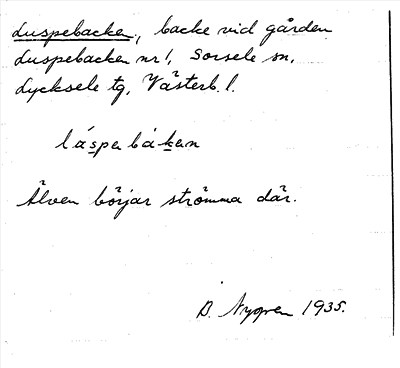 Luspebacken, backe vid gården
Luspebacken nr 1, Sorsele sn,
Lycksele tg, Västerb. l.
láspebáken
Älven börjar strömma där.
B. Nygren 1935.